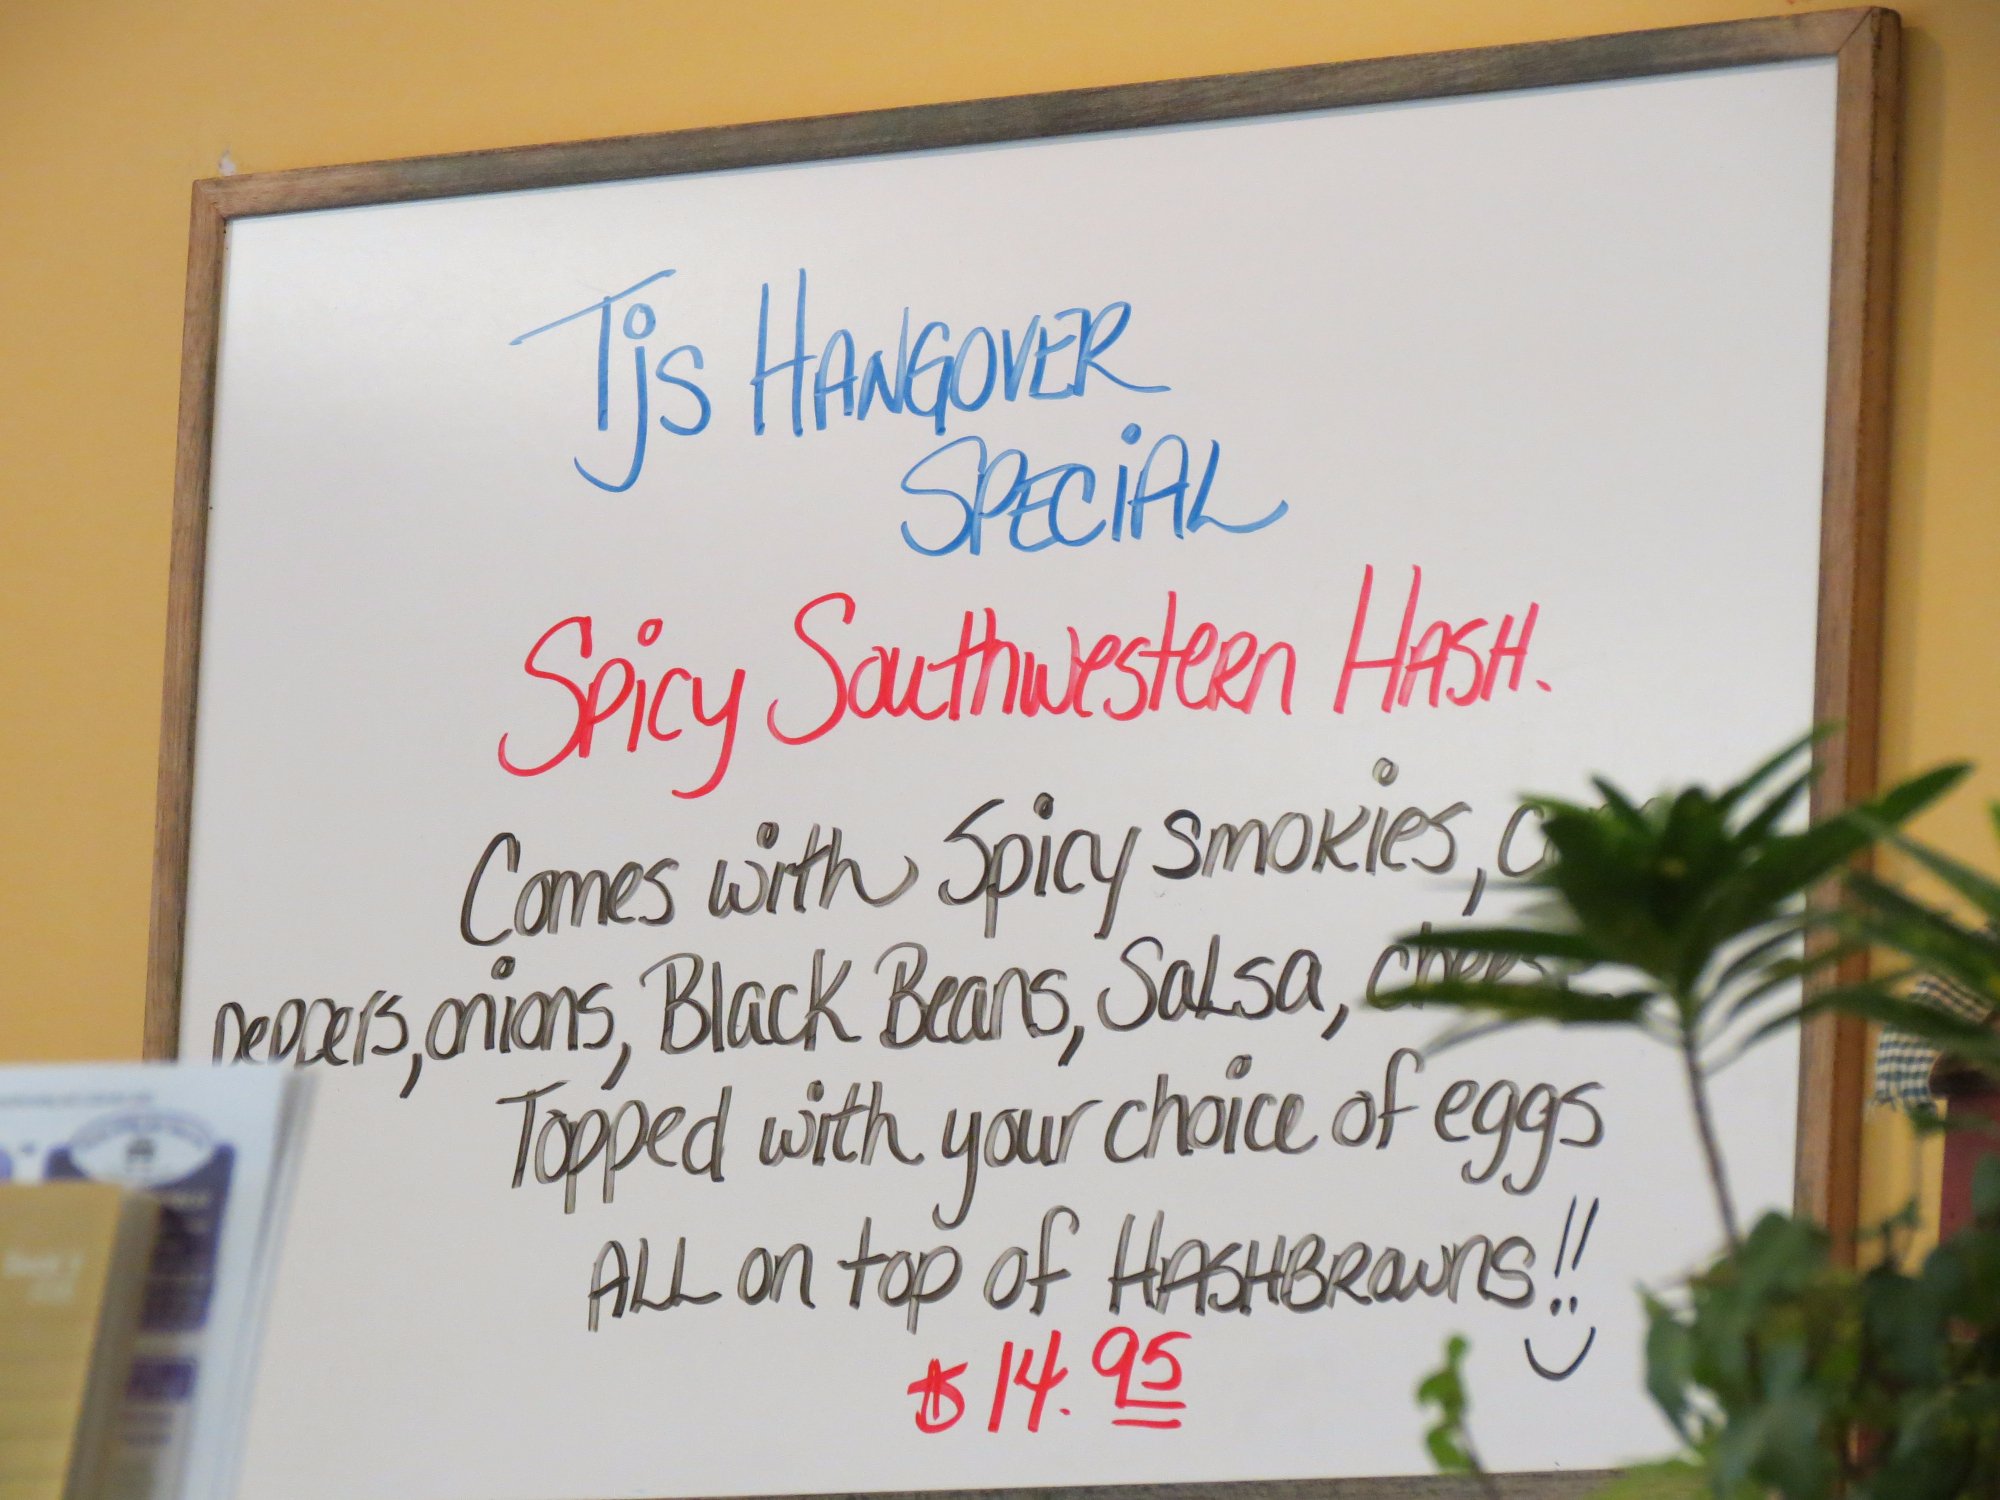 Tjs HANGOVER
SPECiAL
Spicy Southwestern HASH.
Comes with Spicy smokies,
peppers, onions, Black Beans, Salsa, cheese
Topped with your choice of eggs
ALL on top of HASHBROWNS!!
$14.95